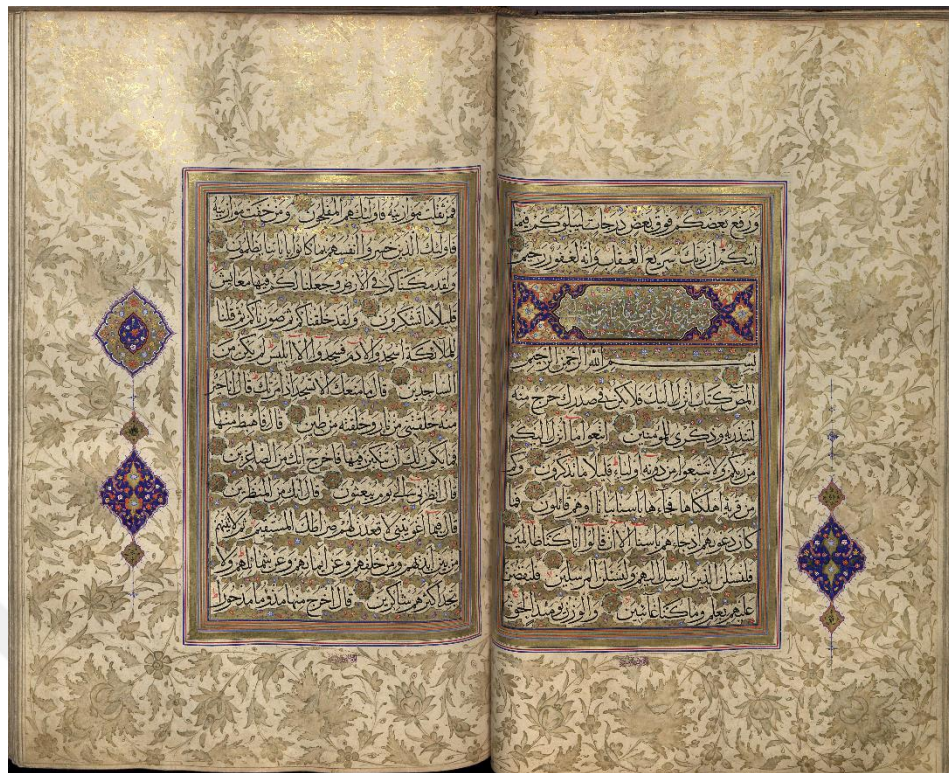 ورفع بعضكم فوق بعض درجات ليبلوكم فيما
اتيكم ان ربك سريع العقاب وانه لغفور رحيم
سورة الاعراف
بسم الله الرحمن الرحيم
المص كتاب انزل اليك فلا يكن في صدرك حرج منه
لتنذر به وذكرى للمؤمنين اتبعوا ما انزل اليكم
من ربكم ولا تتبعوا من دونه اولياء قليلا ما تذكرون وكم
من قرية اهلكناها فجاءها باسنا بياتا او هم قائلون فما
كان دعويهم اذ جاءهم باسنا الا ان قالوا انا كنا ظالمين
فلنسئلن الذين ارسل اليهم ولنسئلن المرسلين فلنقصن
عليهم بعلم وما كنا غائبين والوزن يومئذ الحق
فمن ثقلت موازينه فاولئك هم المفلحون ومن خفت موازينه
فاولئك الذين خسروا انفسهم بما كانوا باياتنا يظلمون
ولقد مكناكم في الارض وجعلنا لكم فيها معايش
قليلا ما تشكرون ولقد خلقناكم ثم صورناكم ثم قلنا
للملائكة اسجدوا لادم فسجدوا الا ابليس لم يكن من
الساجدين قال ما منعك الا تسجد اذ امرتك قال انا خير
منه خلقتني من نار وخلقته من طين قال فاهبط منها
فما يكون لك ان تتكبر فيها فاخرج انك من الصاغرين
قال انظرني الى يوم يبعثون قال انك من المنظرين
قال فبما اغويتني لاقعدن لهم صراطك المستقيم ثم لاتينهم
من بين ايديهم ومن خلفهم وعن ايمانهم وعن شمائلهم ولا
تجد اكثرهم شاكرين قال اخرج منها مذؤما مدحورا